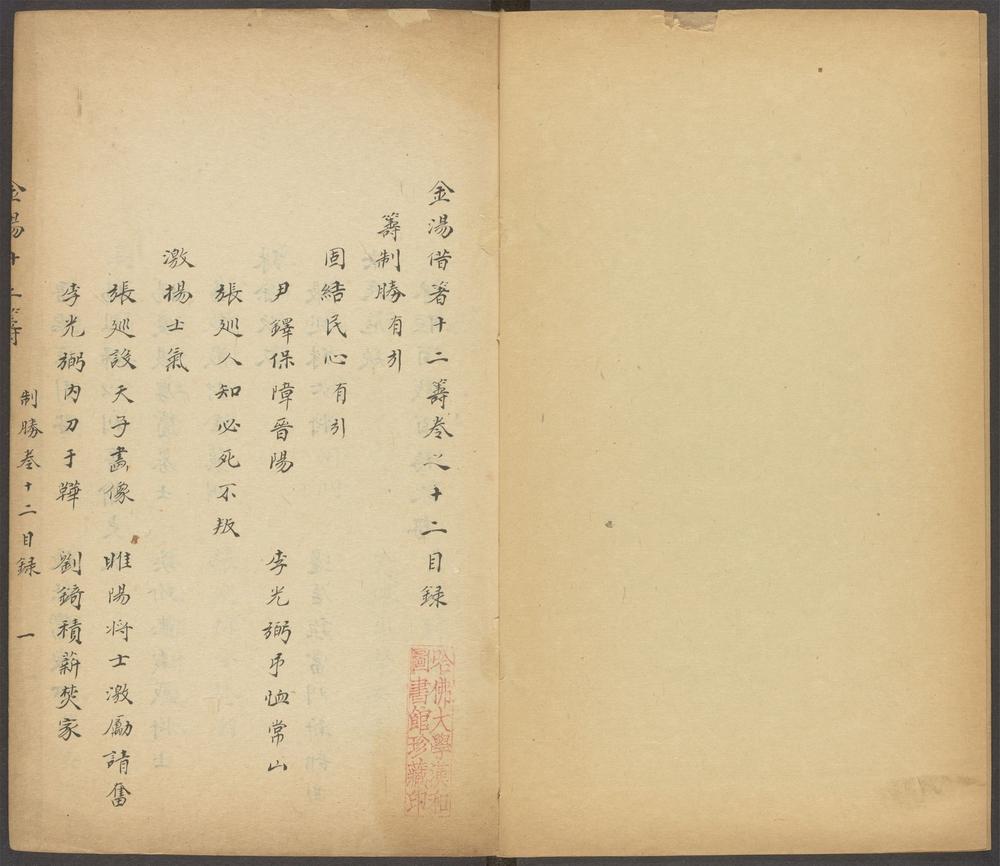 金湯借箸十二籌卷之十二目録
籌制勝有引
固結民心有引
尹鐸保障晉陽 李光弼弔恤常山
張廵人知必死不叛
激揚士氣
張廵設天子畫像 睢陽將士激勵請奮
李光弼内刀于鞾 劉錡積薪焚家
金湯十二籌 制勝卷十二目録 一
哈佛大學漢和
圖書館珍藏印